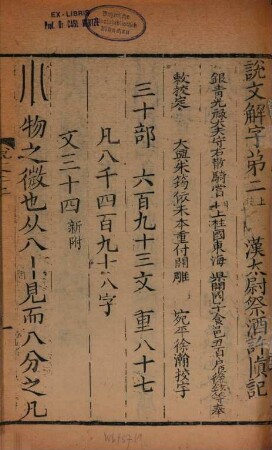 EX-LIBRIS
Prof. Dr. CARL
說文解字弟二上 漢太尉祭酒許慎記
銀青光祿大夫守右散騎常侍上柱國東海縣開國子食邑五百戶臣徐鉉等奉
敕校定 大興朱筠依宋本重付開雕 宛平徐瀚挍字
三十部 六百九十三文 重八十七
凡八千四百九十八字
文三十四 新附
小 物之微也从八丨見而八分之凡